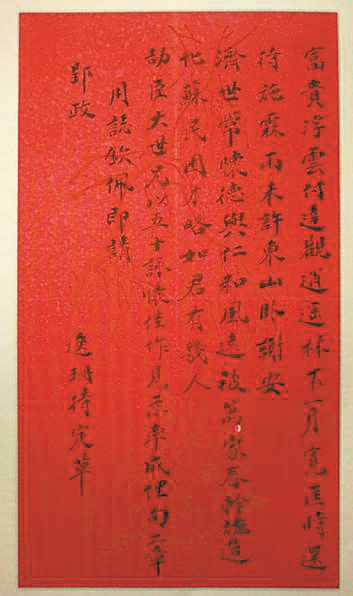 富貴浮雲付達觀逍遥林下一身寬匡時還
待施霖雨未許東山卧謝安
濟世常懷德與仁和風遠被萬家春斡旋造
化蘇民困才略如君有幾人
劼臣大世兄以五十詠懷佳作見示率成俚句二章
用誌欽佩即請
郢政
逸珊待定草